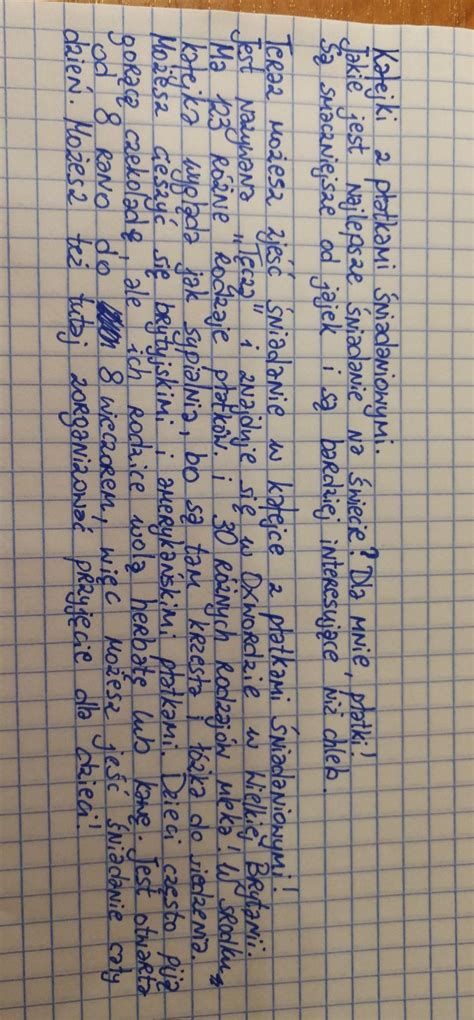 Kafejki z płatkami śniadaniowymi.
Jakie jest najlepsze śniadanie na świecie? Dla mnie, płatki!
Są smaczniejsze od jajek i są bardziej interesujące niż chleb.
Teraz możesz zjeść śniadanie w kafejce z płatkami śniadaniowymi!
Jest nazywana „Tęcza" i znajduje się w Oxwordzie w Wielkiej Brytanii.
Ma 123 różne rodzaje płatków i 30 różnych rodzajów mleka! W środku,
kafejka wygląda jak sypialnia, bo są tam krzesła i łóżka do siedzenia.
Możesz cieszyć się brytyjskimi i amerykańskimi płatkami. Dzieci często piją
gorącą czekoladę, ale ich rodzice wolą herbatę lub kawę. Jest otwarta
od 8 rano do 8 wieczorem, więc możesz jeść śniadanie cały
dzień. Możesz też tutaj zorganizować przyjęcie dla dzieci!